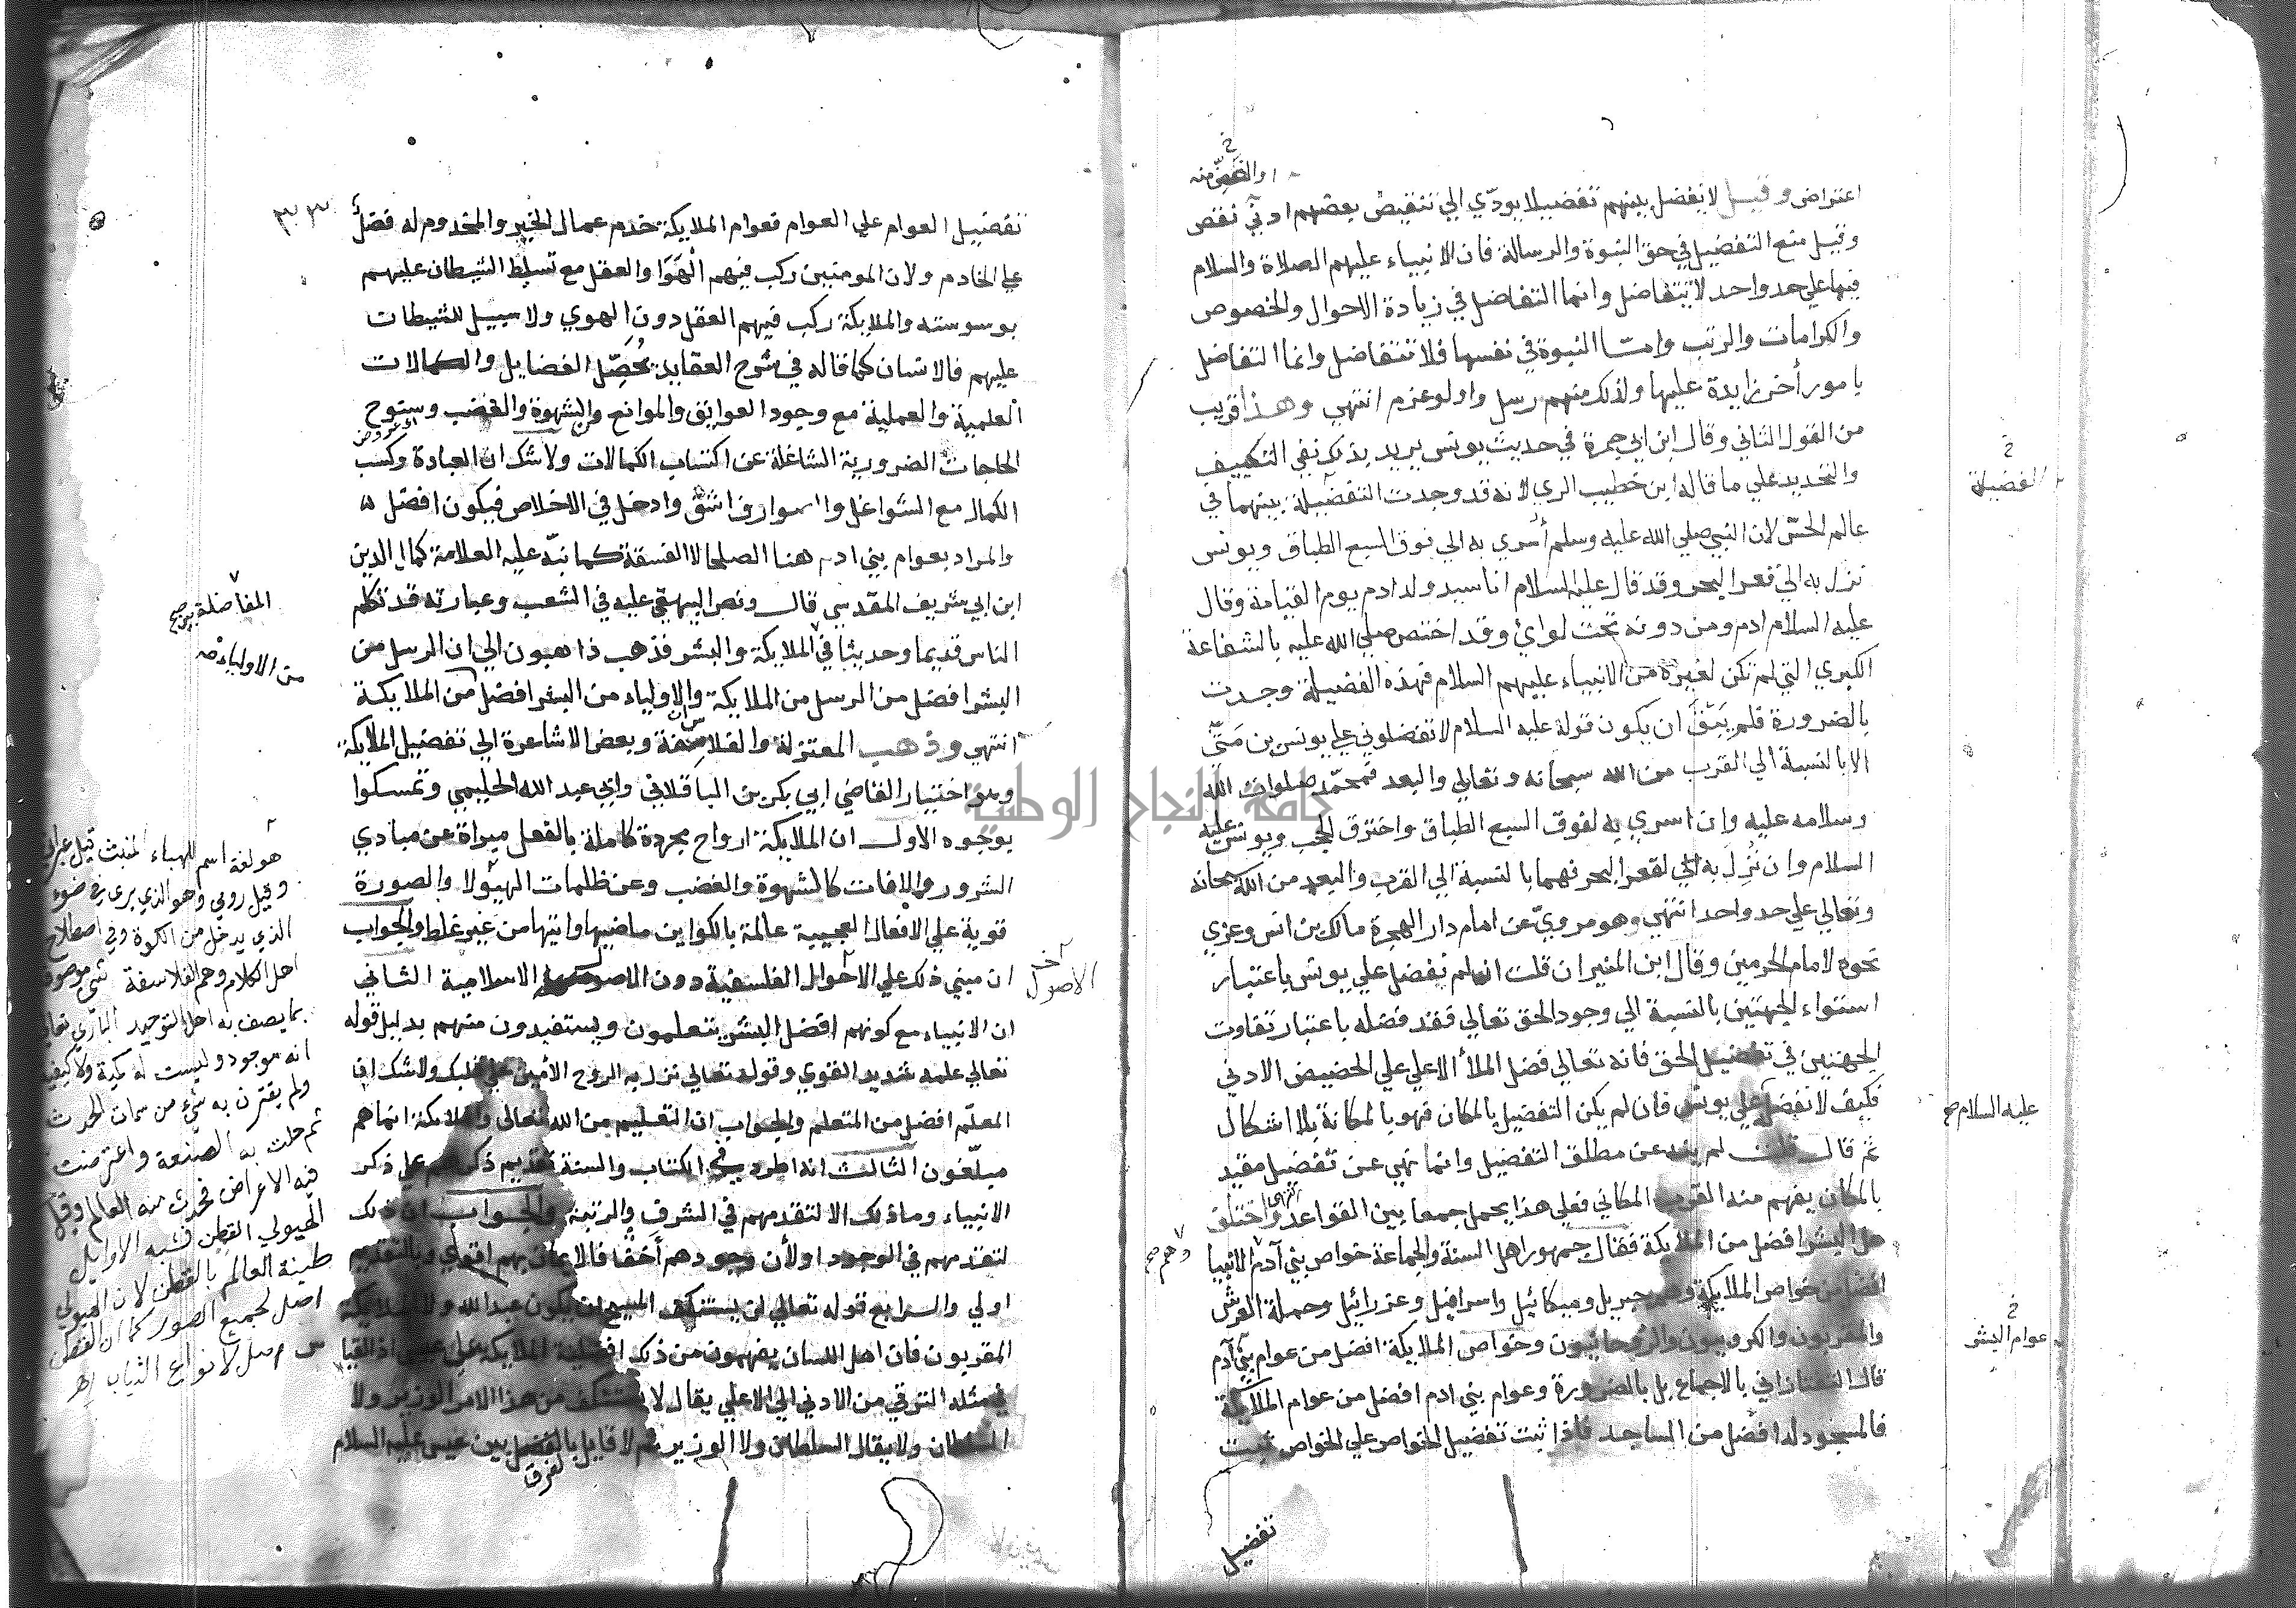 اعتراض وقيل لا يفضل بينهم تفضيلا يودي الي تنقيص بعضهم ادني نقص
والغض منه
وقيل منع التفضيل في حق النبوة والرسالة فان الانبياء عليهم الصلاة والسلام
فيها علي حد واحد لا تتفاضل وانما التفاضل في زيادة الاحوال والخصوص
والكرامات والرتب وامّا النبوة في نفسها فلا تتفاضل وانما التفاضل
بامور أخر زايدة عليها ولذلك منهم رسل واولو عزم انتهي وهذا قريب
من القول الثاني وقال ابن ابي جمرة في حديث يونس يريد بذلك نفي التكييف
والتحديد علي ما قاله ابن خطيب الري لانه قد وجدت التفضيلة بينهما في
الفضيلة
عالم الحسّ لان النبي صلي الله عليه وسلم أسري به الي فوق السبع الطباق ويونس
نزل به الي قعر البحر وقد قال عليه السلام انا سيد ولد ادم يوم القيامة وقال
عليه السلام ادم ومن دونه تحت لوائ وقد اختص صلي الله عليه بالشفاعة
الكبري التي لم تكن لغيره من الانبياء عليهم السلام فهذه الفضيلة وجدت
بالضرورة فلم يَبْقَ ان يكون قوله عليه السلام لا تفضلوني علي يونس بن مَتَّي
الا بالنسبة الي القرب من الله سبحانه وتعالي والبعد فمحمّد صلوات الله
وسلامه عليه وان اسري به لفوق السبع الطباق واخترق الحجب ويونس عليه
السلام وان نُزِلَ به الي لقعر البحر فهما بالنسبة الي القرب والبعد من الله سبحانه
وتعالي علي حد واحد انتهي وهو مرويّ عن امام دار الهجرة مالك بن انس وعزي
نحوه لامام الحرمين وقال ابن المنير ان قلت ان لم تفضل علي يونس باعتبار
استواء الجهتين بالنسبة الي وجود الحق تعالي فقد فضله باعتبار تفاوت
الجهتين في تفضيل الحق فانه تعالي فضل الملأ الاعلي علي الحضيض الادني
فكيف لا نفضله علي يونس فان لم يكن التفضيل بالمكان فهو بالمكانة بلا اشكال
عليه السلام صح
ثم قال قلت لم ينه عن مطلق التفضيل وانما نهي عن تفضيل مقيد
بالمكان يفهم منه القرب المكاني فعلي هذا يحمل جمعا بين القواعد انتهى واختلف
هل البشر افضل من الملايكة فقال جمهور اهل السنة والجماعة خواص بني آدم الانبيا
وهم صح
افضل من خواص الملايكة وهم جبريل وميكائيل واسرافيل وعزرائيل وحملة العرش
والمقربون والكروبيون والروحانيون وخواص الملايكة افضل من عوام بني آدم
عوام البشر
قال التفتازاني بالاجماع بل بالضرورة وعوام بني ادم افضل من عوام الملايكة
فالمسجود له افضل من الساجد فاذا ثبت تفضيل الخواص علي الخواص ثبت
تفضيل
٣٣
تفضيل العوام علي العوام فعوام الملايكة خدم عمال الخير والمخدوم له فضل
علي الخادم ولان المومنين ركب فيهم الْهَوَا والعقل مع تسلِّط الشيطان عليهم
بوسوسته والملايكة ركب فيهم العقل دون الهوي ولا سبيل للشيطان
عليهم فالانسان كما قاله في شرح العقايد يُحُصِّل الفضايل والكمالات
العلمية والعملية مع وجود العوايق والموانع من الشهوة والغضب وسنوح
الحاجات الضرورية الشاغلة عن اكتساب الكمالات ولا شك ان العبادة وكسب
الكمال مع الشواغل والصوارف اشقّ وادخل في الاخلاص فيكون افضل
والمراد بعوام بني ادم هنا الصلحا لا الفسقة كما نبّه عليه العلامة كمال الدين
ابن ابي شريف المقدسي قال ونص البيهقي عليه في الشعب وعبارته قد تكلم
الناس قديما وحديثا في الملايكة والبشر فذهب ذاهبون الي ان الرسل من
المفاضلة بين صح
البشر افضل من الرسل من الملايكة والاولياء من البشر افضل من الملايكة
من الاولياء
انتهي وذهب المعتزلة والفلاسفة وبعض الاشاعرة الي تفضيل الملايكة
وهو اختيار القاضي ابي بكر بن الباقلاني وابي عبد الله الحليمي وتمسكوا
بوجوه الاول ان الملايكة ارواح مجردة كاملة بالفعل مبراة عن مبادي
الشرور والافات كالشهوة والغضب وعن ظلمات الهيولا والصورة
قوية علي الافعال العجيبة عالمة بالكواين ماضيها واتيها من غير غلط والجواب
ان مبني ذلك علي الاحوال الفلسفية دون الاصول الاسلامية الثاني
الاصول
ان الانبياء مع كونهم افضل البشر يتعلمون ويستفيدون منهم بدليل قوله
تعالي علمه شديد القوي وقوله تعالي نزل به الروح الأمين علي قلبك ولا شك ان
المعلّم افضل من المتعلم والجواب ان التعليم من الله تعالي والملايكة انما هم
مبلّغون الثالث انه اطرد في الكتاب والسنة تقديم ذكرهم علي ذكر
الانبياء وما ذلك الا لتقدمهم في الشرف والرتبة والجواب ان ذلك
لتقدمهم في الوجود او لأن وجودهم أَخفَا فالايمان بهم اقوي وبالتقديم
اولي والرابع قوله تعالي لن يستنكف المسيح ان يكون عبدا لله ولا الملايكة
المقربون فان اهل اللسان يفهمون من ذلك افضلية الملايكة علي عيسي اذ القيا
في مثله الترقي من الادني الي الاعلي يقال لا يستنكف من هذا الامر الوزير ولا
السلطان ولا يقال السلطان ولا الوزير ثم لا قايل بالفضل بين عيسي عليه السلام
لفرق
هو لغة اسم للهباء المنبث قيل
وقيل رومي وهو الذي يرى في ضوء
الذي يدخل من الكوة وفي اصطلاح
اهل الكلام وهم الفلاسفة شيء موصوف
بما يصف به اهل التوحيد الباري تعالى
انه موجود وليست له كمية ولا كيفية
ولم يقترن به شيء من سمات الحدث
ثم حلت به الصنعة واعترضت
فيه الاعراض فحدث منه العالم وقيل
الهيولي القطن فشبه الاوايل
طينة العالم بالقطن لان الهيولي
اصل لجميع الصور كما ان القطن
اصل لانواع الثياب اهـ
جامعة النجاح الوطنية